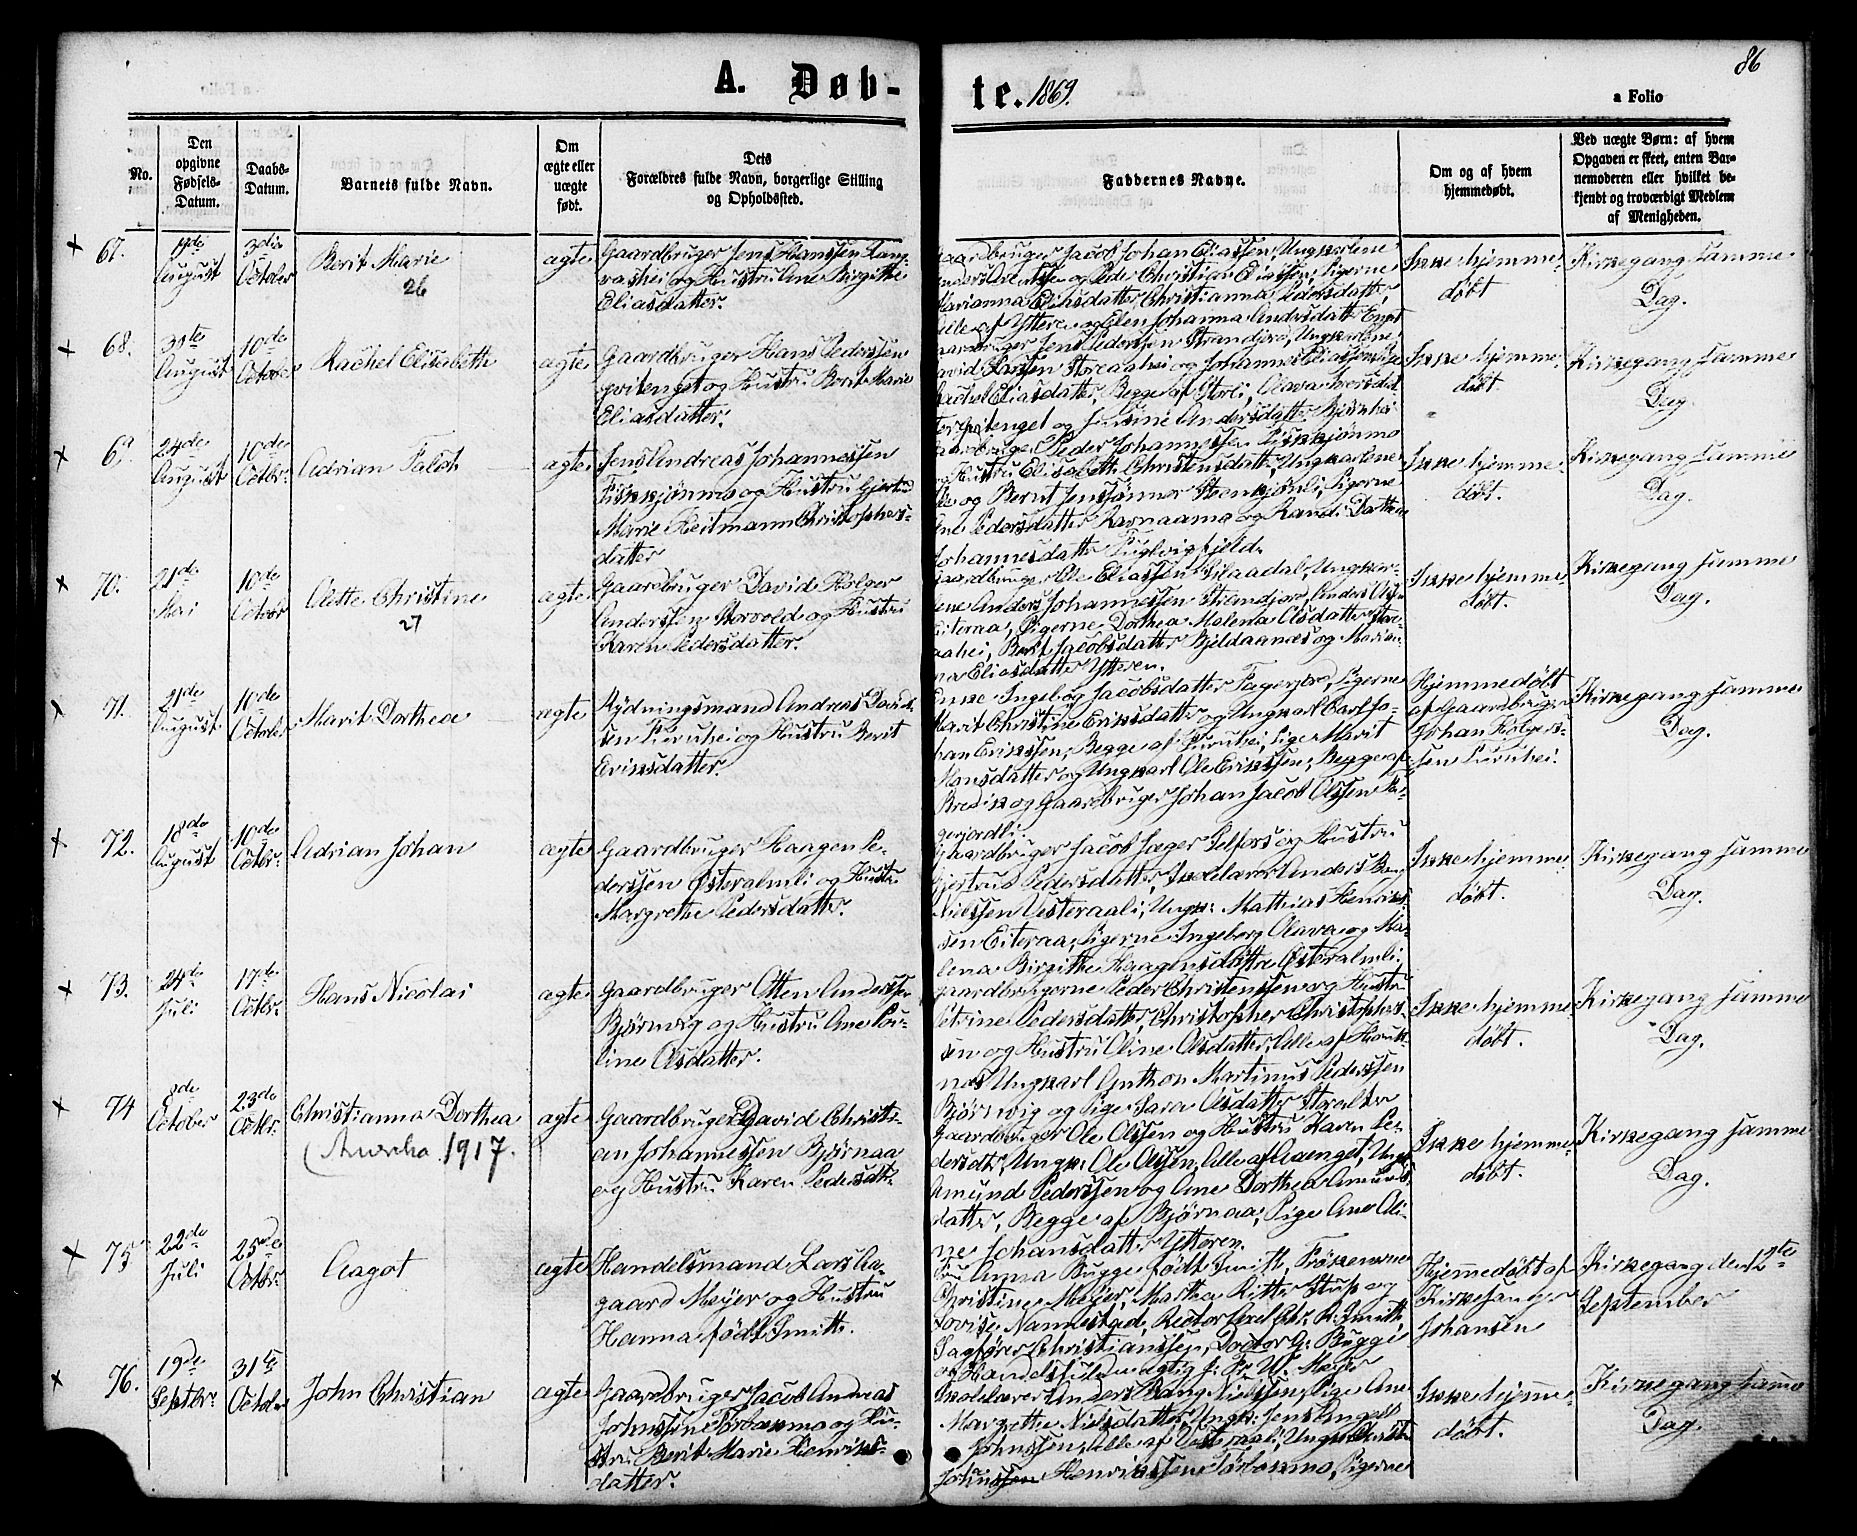 86
A. Døb-
te. 1869.
a Folio
No.
Den
opgivne
Fødsels-
Datum.
Daabs-
Datum.
Barnets fulde Navn.
Om
ægte eller
uægte
født.
Dets
Forældres fulde Navn, borgerlige Stilling
og Opholdssted.
Faddernes Navne.
Om og af hvem
hjemmedøbt.
Ved uægte Børn: af hvem
Opgaven er skeet, enten Bar-
nemoderen eller hvilket be-
kjendt og troværdigt Medlem
af Menigheden.
67.
August
3die
October
Berit Marie
26
ægte
Gaardbruger Jens Hanssen Lang-
vashei og Hustru Ane Birgitte
Eliasdatter.
Gaardbruger Jacob Johan Eliassen, Ungkarlene
og Peder Christian Eliassen, Pigerne
Marianna Eliasdatter, Christianna Pedersdatter,
Alle af Ytteren og Elen Johanna Andersdatter
Ikke hjemme-
døbt
Kirkegang samme
Dag.
68.
August
10de
October
Rachel Elisabeth
ægte
Gaardbruger Hans Pederssen
og Hustru Berit Marie
Eliasdatter.
Gaardbruger Jens Pederssen Strandjord, Ungkarlene
David Larssen Storaahei og Johannes Eliassen, Pige
Rachel Eliasdatter, Begge af Storli, Olava Iversdat-
ter og Jensine Andersdatter Bjørnhei
Ikke hjemme-
døbt.
Kirkegang samme
Dag.
69
24de
August
10de
Octbr:
Adrian Falch
ægte
Jens Andreas Johannessen
Fiskkjønmo og Hustru Gjertru
Marie Heitmann Christophers-
datter
Gaardbruger Peder Johannessen Fiskkjønmo
og Hustru Elisabeth Christensdatter, Ungkarlene
Ole og Bernt Jenssønner Steenkjønli, Pigerne
Ane Pedersdatter Ravnaamo og Randi Dorthea
Johannesdatter Fuglvigfjeld.
Ikke hjemme-
døbt.
Kirkegang samme
Dag.
70.
21de
Mai
10de
October
Alette Christine
27
ægte
Gaardbruger David Holger
Anderssen Storvold og Hustru
Karen Pedersdatter.
Gaardbruger Ole Eliassen Plaadal, Ungkar-
lene Anders Johannessen Strandjord, Anders Ols:
Eiteraa, Pigerne Dorthea Malena Olsdatter Stor-
aahei, Berit Jacobsdatter Bjeldaanæs og Marian-
na Eliasdatter Ytteren.
Ikke hjemme-
døbt.
Kirkegang samme
Dag.
71.
21de
August
10de
October
Marit Dorthea
ægte
Rydningsmand Andreas David-
sen Furuhei og Hustru Berit
Eriksdatter.
Enke Ingeborg Jacobsdatter Fagerjord, Pigerne
Marit Christine Eriksdatter og Ungkarl Carl Jo-
han Erikssen, Begge af Furuhei, Pige Marit
Monsdatter og Ungkarl Ole Erikssen, Begge af
Bredik og Gaardbruger Johan Jacob Olssen Fa-
gerjordli.
Hjemmedøbt
af Gaardbruger
Johan Holgers-
sen Furuhei.
Kirkegang samme
Dag.
72.
18de
August
10de
Octbr:
Adrian Johan
ægte
Gaardbruger Haagen Pe-
derssen Østeralmli og Hustru
Margrethe Pedersdatter.
Gaardbruger Jacob Jæger Selfors og Hustru
Gjertrud Pedersdatter, Skolelærer Anders Bang
Nielssen Vesteraali, Ungk: Mathias Henriks-
sen Eiteraa, Pigerne Ingeborg Olava og Ma-
lena Birgitte Haagensdøttre Østeralmli.
Ikke hjemme-
døbt.
Kirkegang samme
Dag.
73.
24de
Juli
17de
Octbr:
Hans Nicolai
ægte
Gaardbruger Otten Anderssen
Bjørnvig og Hustru Ane Pou-
line Olsdatter.
Gaardbrugerne Peder Christenssen og Hustru
Petrine Pedersdatter, Christopher Christophers-
sen og Hustru Oline Olsdatter, Alle af
næs, Ungkarl Anthon Martinus Pederssen
Bjørnvig og Pige Sara Olsdatter
Ikke hjemme-
døbt.
Kirkegang samme
Dag.
74
8de
October
23de
Octbr:
Christianna Dorthea
1917.
ægte
Gaardbruger David Christi-
an Johannessen Bjørnaa
og Hustru Karen Pedersdtr
Gaardbruger Ole Olssen og Hustru Karen Pe-
dersdtr, Ungk: Ole Olssen, Alle af Aaenget, Ungk
Amund Pederssen og Ane Dorthea Amunds-
datter, Begge af Bjørnaa, Pige Ane Oli-
ne Johansdatter Ytteren.
Ikke hjemme-
døbt.
Kirkegang samme
Dag.
75
22de
Juli
25de
Octbr:
Aagot
ægte
Handelsmand Lars Aa-
gaard Meyer og Hustru
Hanna født Smitt.
Fru Anna Bugge født Smith, Frøknerne
Christine Meyer, Martha Ritter Stub og
Lovise Nannestad, Rector Axel Chr. R. Smitth,
Sagfører Christianssen, Doctor G. Bugge
og Handelsfuldmægtig J. Fr. W. Meyer
Hjemmedøbt af
Kirkesanger
Johansen
Kirkegang den 12te
September
76.
19de
Septbr:
31te
October
John Christian
ægte
Gaardbruger Jacob Andreas
Johnssen Forbakmo og Hu-
stru Berit Marie Henriks-
datter.
Skolelærer Anders Bang Nielssen, Pige Ane
Margrethe Nielsdatter, Ungk: Jens Angell
Johnssen, Alle af Vesteraali, Ungk
Henrikssen Pigerne
Ikke hjemme-
døbt.
Kirkegang samme
Dag.